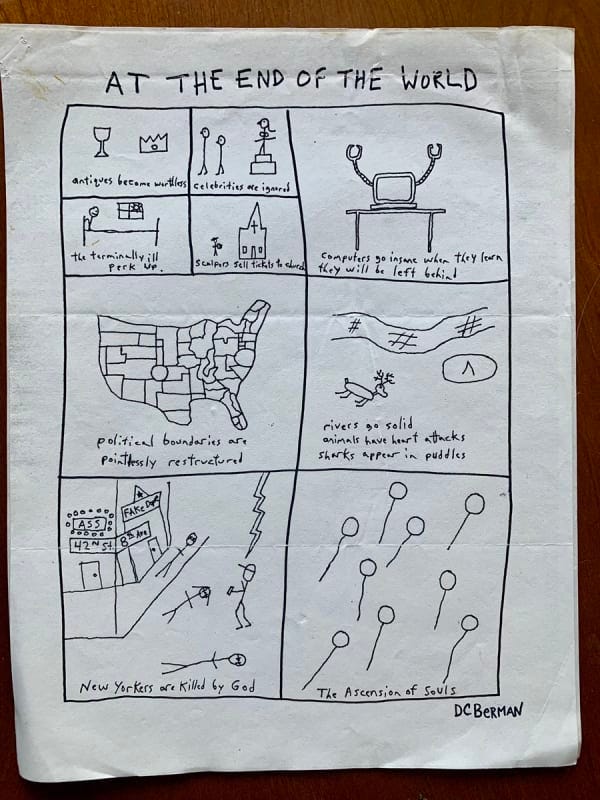 AT THE END OF THE WORLD
antiques become worthless
celebrities are ignored
the terminally ill
perk up.
scalpers sell tickets to church
computers go insane when they learn
they will be left behind
political boundaries are
pointlessly restructured
rivers go solid
animals have heart attacks
sharks appear in puddles
ASS
42nd St.
FAKE Dope
8th Ave
New Yorkers are killed by God
The Ascension of Souls
DCBERMAN